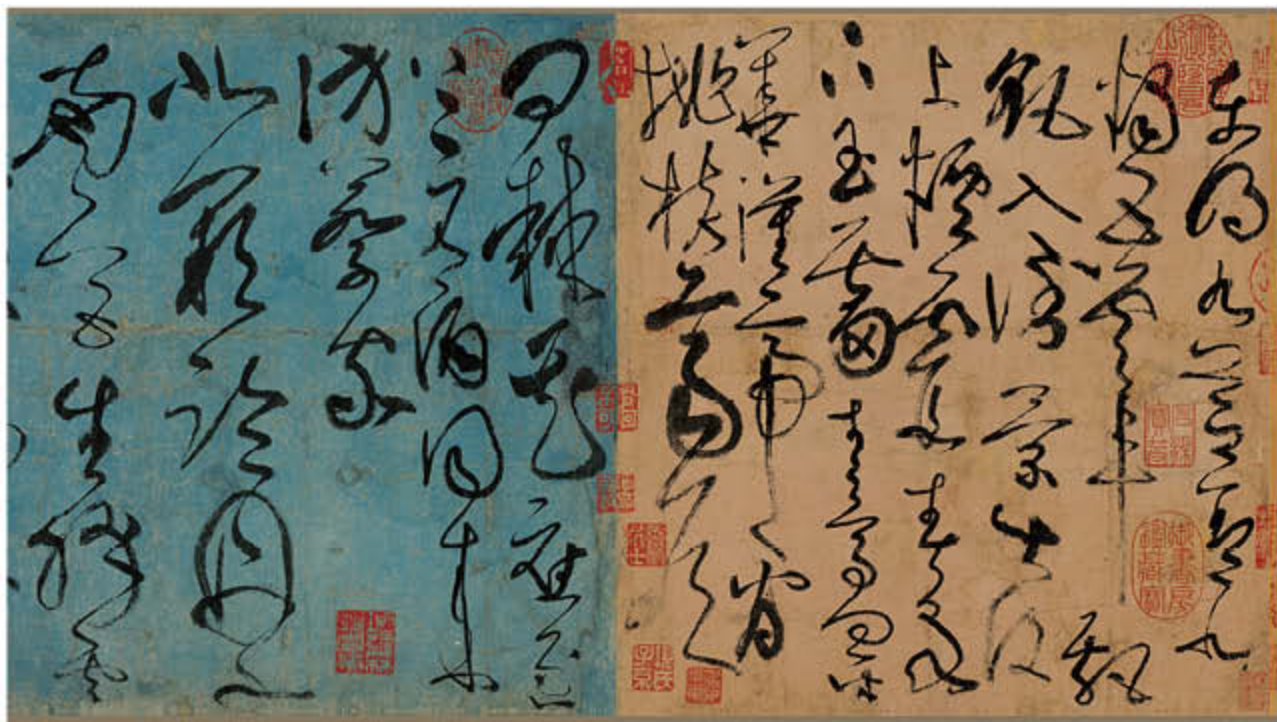 東明九芝蓋北
燭五雲車飄
飖入倒景出沒
上煙霞春泉
下玉霤青鳥向金
華漢帝看
桃核齊侯
問棘花應逐
上元酒同來
訪蔡家
北闕臨丹水
南宮生絳雲